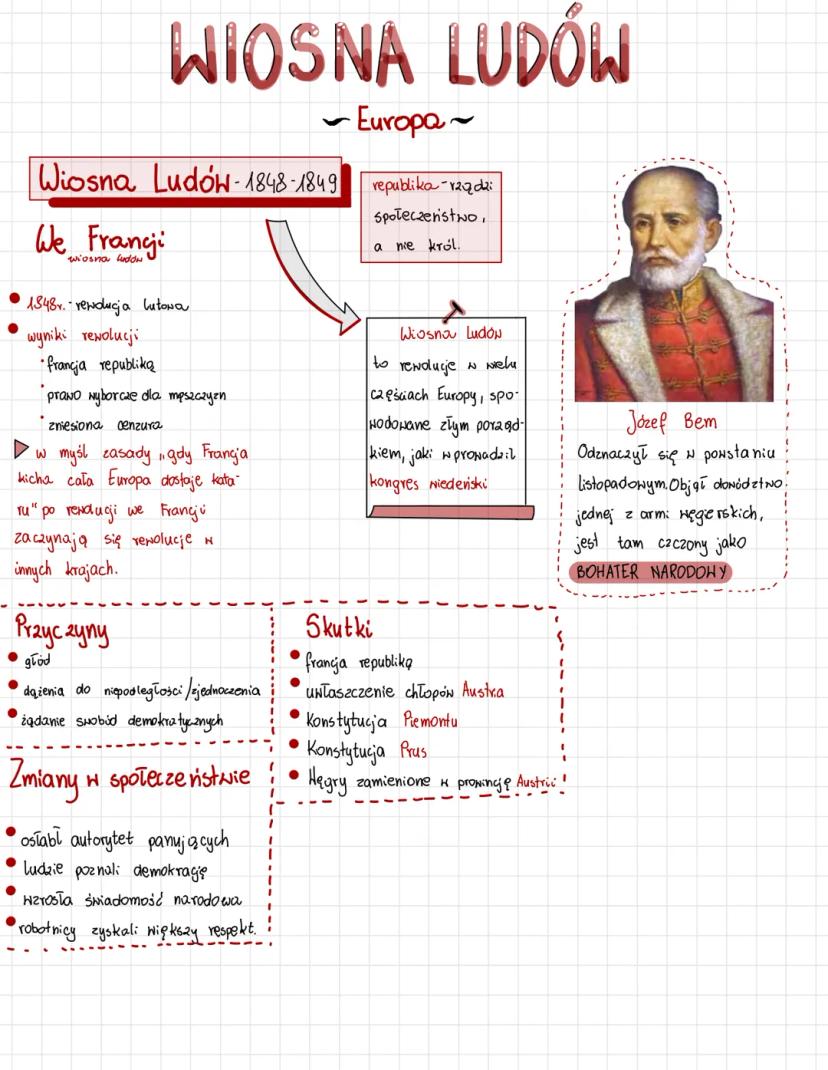 WIOSNA LUDÓW
~ Europa ~
Wiosna Ludów - 1848-1849
republika - rządzi
społeczeństwo,
a nie król.
We Francji
wiosna ludów
1848r. - rewolucja lutowa
wyniki rewolucji
francja republiką
prawo wyborcze dla mężczyzn
zniesiona cenzura
w myśl zasady "gdy Francja
kicha cała Europa dostaje kata-
ru" po rewolucji we Francji
zaczynają się rewolucje w
innych krajach.
Wiosna Ludów
to rewolucje w wielu
częściach Europy, spo-
wodowane złym porząd-
kiem, jaki wprowadził
kongres wiedeński
Józef Bem
Odznaczył się w powstaniu
listopadowym. Objął dowództwo
jednej z armi węgierskich,
jest tam czczony jako
BOHATER NARODOWY
Przyczyny
głód
dążenia do niepodległości/zjednoczenia
żądanie swobód demokratycznych
Skutki
francja republiką
uwłaszczenie chłopów Austria
Konstytucja Piemontu
Konstytucja Prus
Węgry zamienione w prowincję Austrii
Zmiany w społeczeństwie
osłabł autorytet panujących
ludzie poznali demokrację
wzrosła świadomość narodowa
robotnicy zyskali większy respekt.